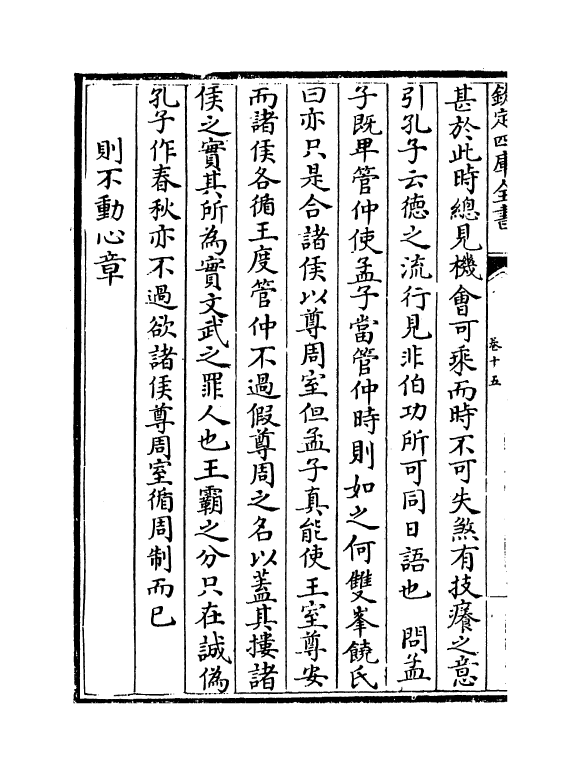 欽定四庫全書
卷十五
甚於此時總見機會可乘而時不可失煞有技癢之意
引孔子云德之流行見非伯功所可同日語也　問孟
子既卑管仲使孟子當管仲時則如之何雙峯饒氏
曰亦只是合諸侯以尊周室但孟子真能使王室尊安
而諸侯各循王度管仲不過假尊周之名以蓋其摟諸
侯之實其所為實文武之罪人也王霸之分只在誠偽
孔子作春秋亦不過欲諸侯尊周室循周制而已
則不動心章